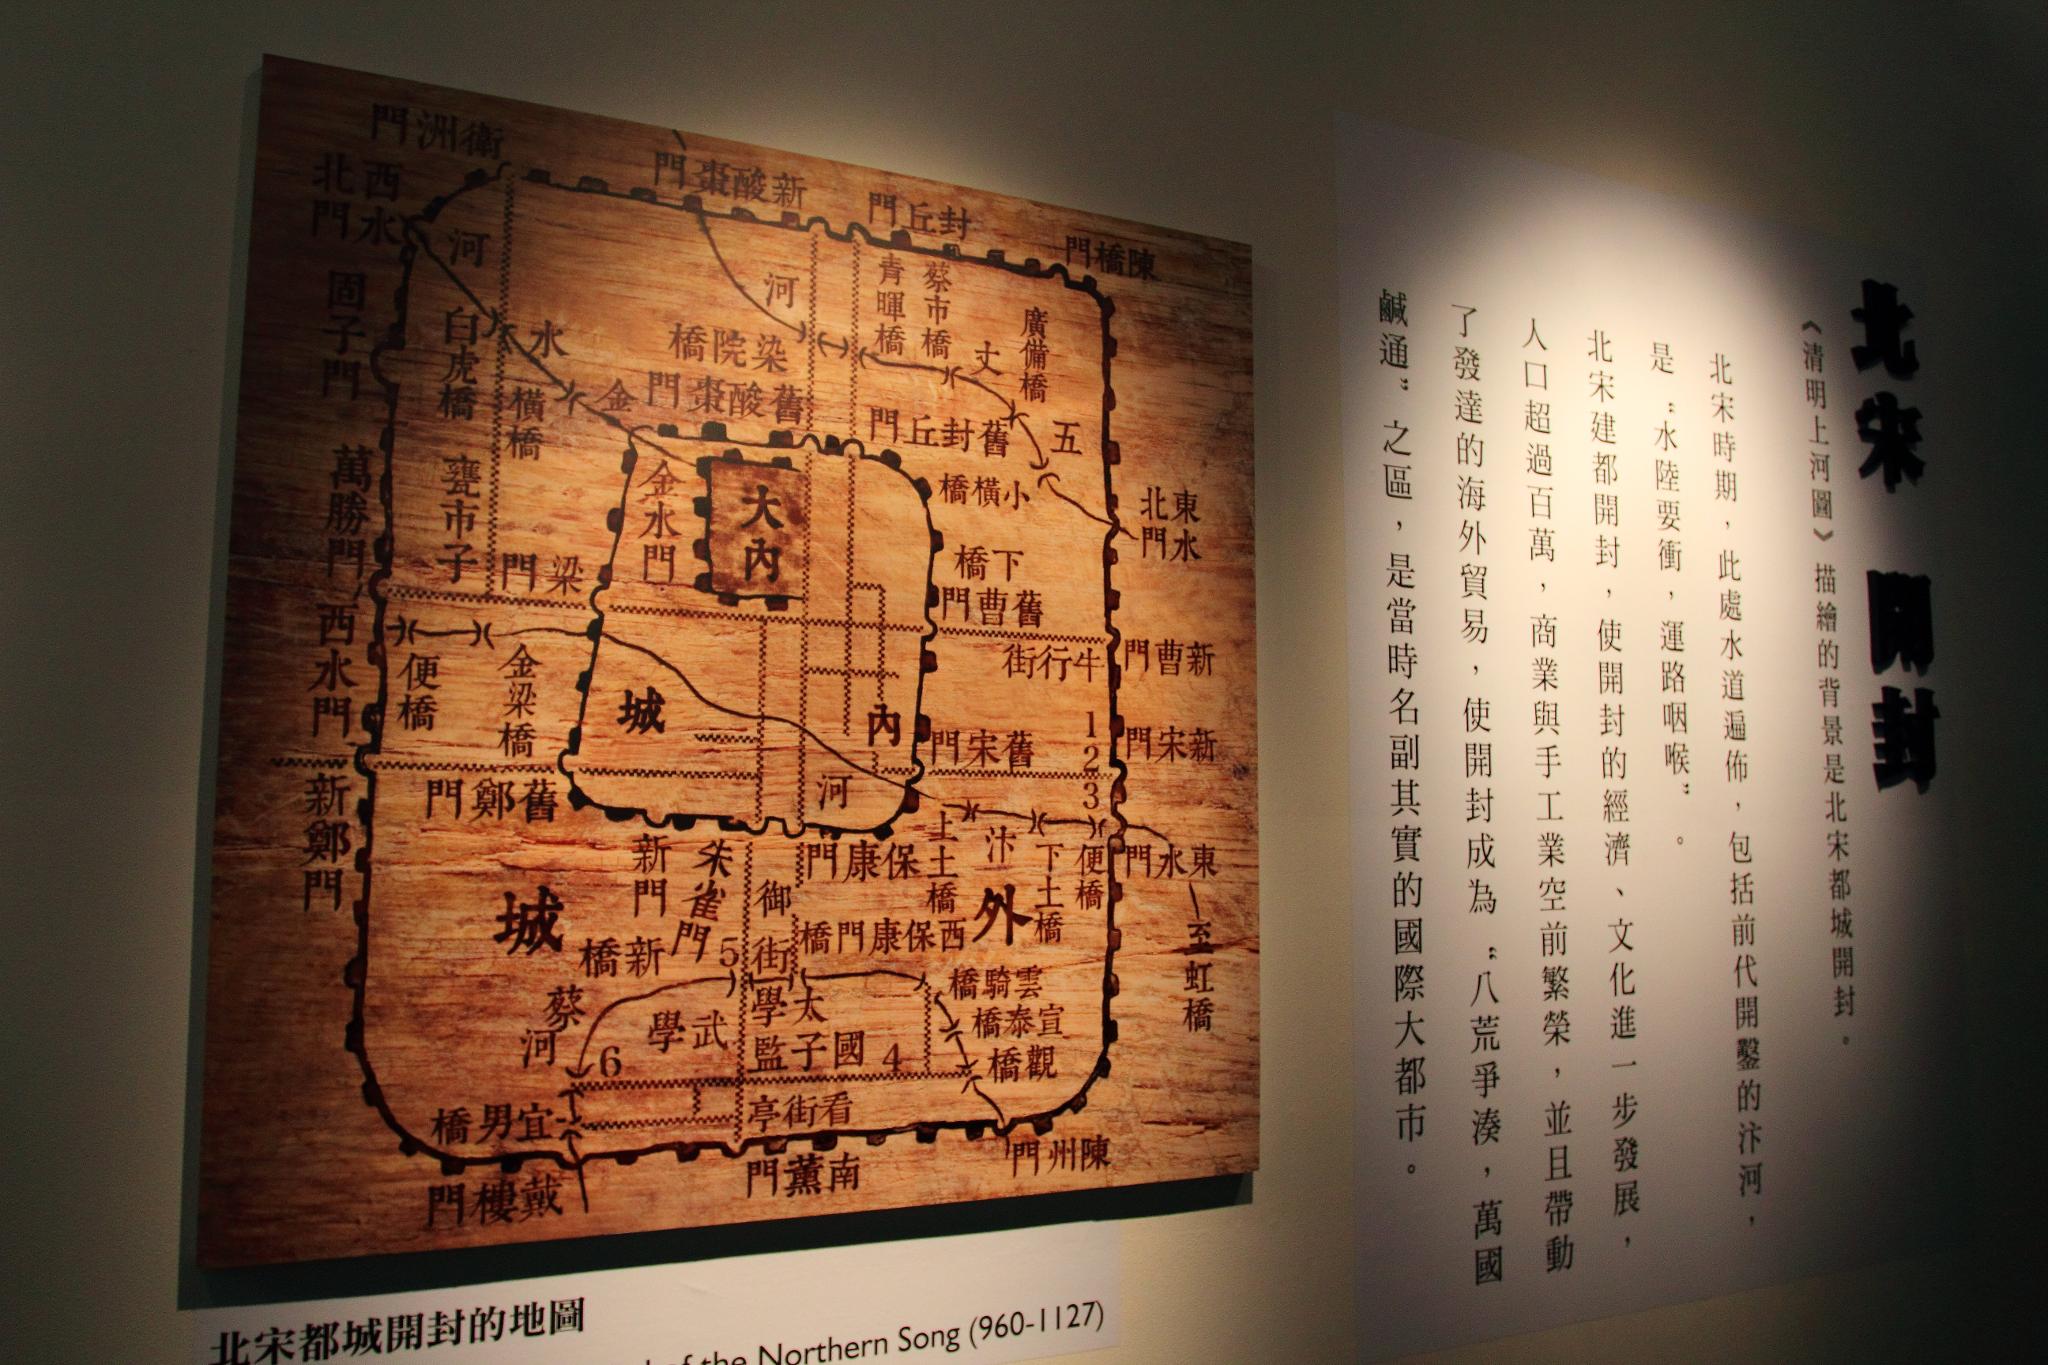 北宋 開封
《清明上河圖》描繪的背景是北宋都城開封。
北宋時期，此處水道遍佈，包括前代開鑿的汴河，
是〝水陸要衝，運路咽喉〞。
北宋建都開封，使開封的經濟、文化進一步發展，
人口超過百萬，商業與手工業空前繁榮，並且帶動
了發達的海外貿易，使開封成為〝八荒爭湊，萬國
鹹通〞之區，是當時名副其實的國際大都市。
門洲衛
門棗酸新
門丘封
門橋陳
西北水門
河
固子門
白虎橋
水
橫橋
金
河
橋院染
門棗酸舊
青暉橋
蔡市橋
丈
廣備橋
五
門丘封舊
萬勝門
甕市子
門梁
金水門
大內
橋橫小
東北水門
橋下
門曹舊
西水門
便橋
金梁橋
城
內
河
街行牛
門曹新
門宋舊
1
2
3
門宋新
新鄭門
門鄭舊
新門
朱雀門
御街
門康保
上土橋
汴
下土橋
便橋
門水東
城
外
橋新
5
橋門康保西
至虹橋
蔡河
6
學武
學太
監子國
4
橋騎雲
橋泰宣
橋觀
橋男宜
亭街看
門樓戴
門薰南
門州陳
北宋都城開封的地圖
of the Northern Song (960-1127)